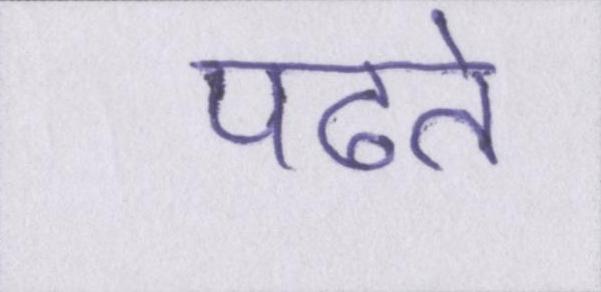 पढते